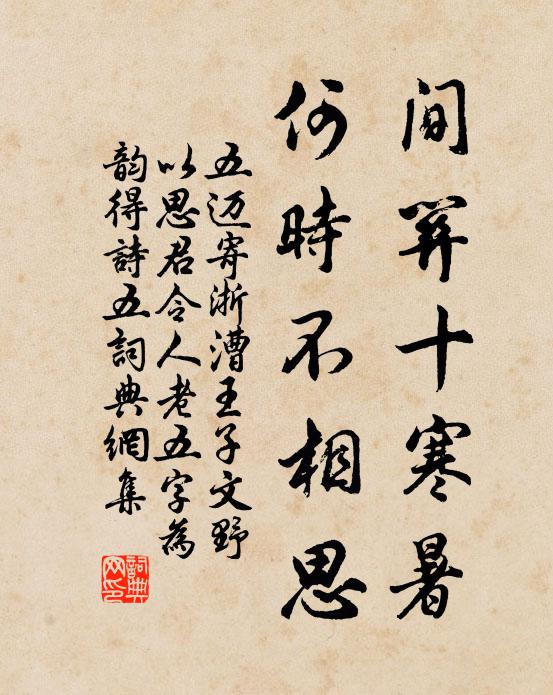 間關十寒暑
何時不相思
五迈寄浙漕王子文野
以思君令人老五字為
韵得詩五詞典網集
詞典
网印